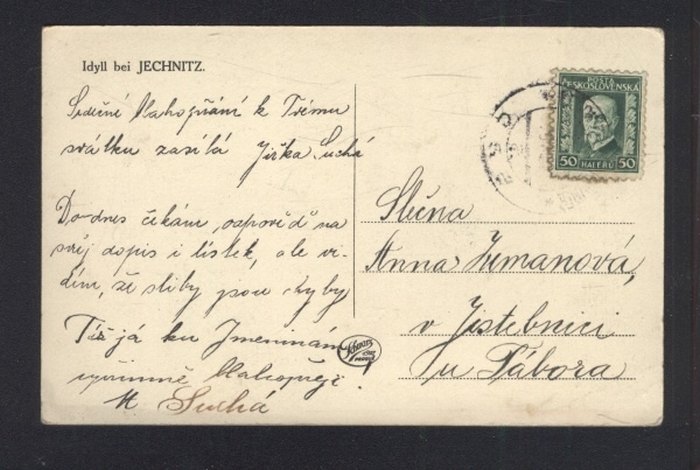 Idyll bei JECHNITZ.
Srdečné blahopřání k Tvému
svátku zasílá Jiřka Suchá
Do-dnes čekám „odpověď“ na
svůj dopis i lístek, ale vi-
dím, že sliby jsou chyby
Též já ku Jmeninám
upřímně blahopřeji!
M Suchá
POSTA
ČESKOSLOVENSKÁ
50 HALÉŘŮ 50
Slečna
Anna Zumanová,
v Jistebnici
u Tábora